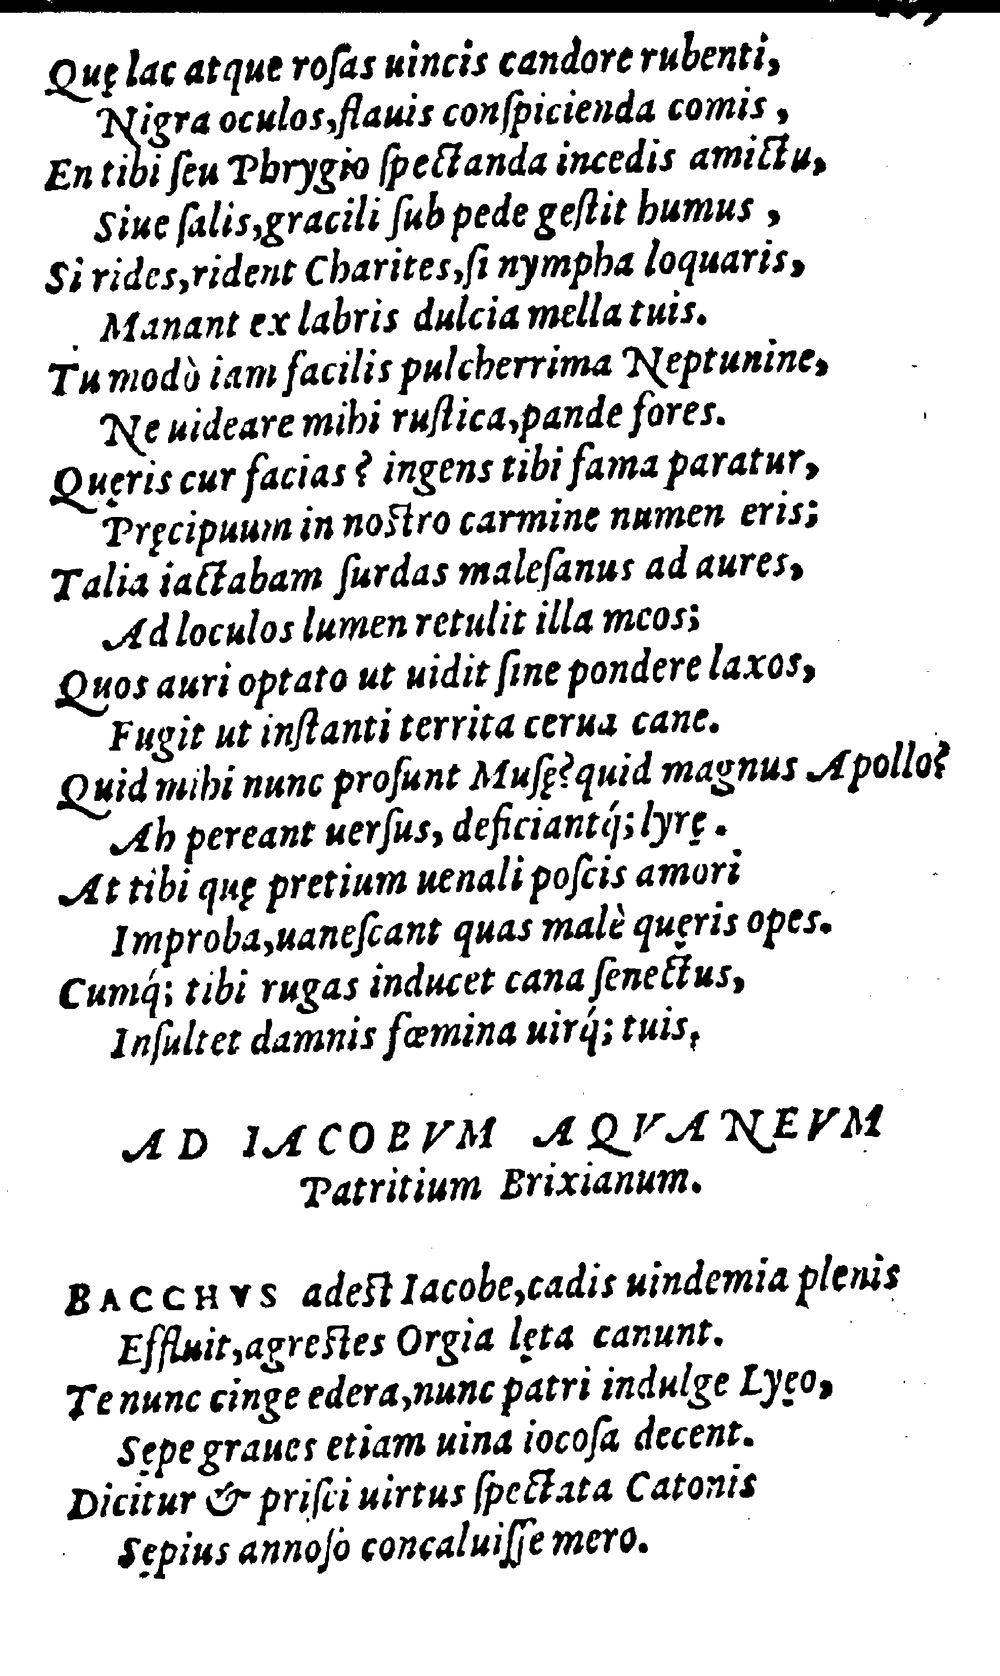 Quę lac atque roſas uincis candore rubenti,
Nigra oculos, flauis conſpicienda comis,
En tibi ſeu Phrygio ſpectanda incedis amictu,
Siue ſalis, gracili ſub pede geſtit humus,
Si rides, rident Charites, ſi nympha loquaris,
Manant ex labris dulcia mella tuis.
Tu modò iam facilis pulcherrima Neptunine,
Ne uideare mihi ruſtica, pande fores.
Quęris cur facias? ingens tibi fama paratur,
Pręcipuum in noſtro carmine numen eris;
Talia iactabam ſurdas maleſanus ad aures,
Ad loculos lumen retulit illa meos;
Quos auri optato ut uidit ſine pondere laxos,
Fugit ut inſtanti territa cerua cane.
Quid mihi nunc proſunt Muſę? quid magnus Apollo?
Ah pereant uerſus, deficiantq́; lyrę.
At tibi quę pretium uenali poſcis amori
Improba, uaneſcant quas malè quęris opes.
Cumq́; tibi rugas inducet cana ſenectus,
Inſultet damnis fœmina uirq́; tuis,

AD IACOBVM AQVANEVM
Patritium Brixianum.

BACCHVS adeſt Iacobe, cadis uindemia plenis
Effluit, agreſtes Orgia lęta canunt.
Te nunc cinge edera, nunc patri indulge Lyęo,
Sępe graues etiam uina iocoſa decent.
Dicitur & priſci uirtus ſpectata Catonis
Sępius annoſo concaluiſſe mero.